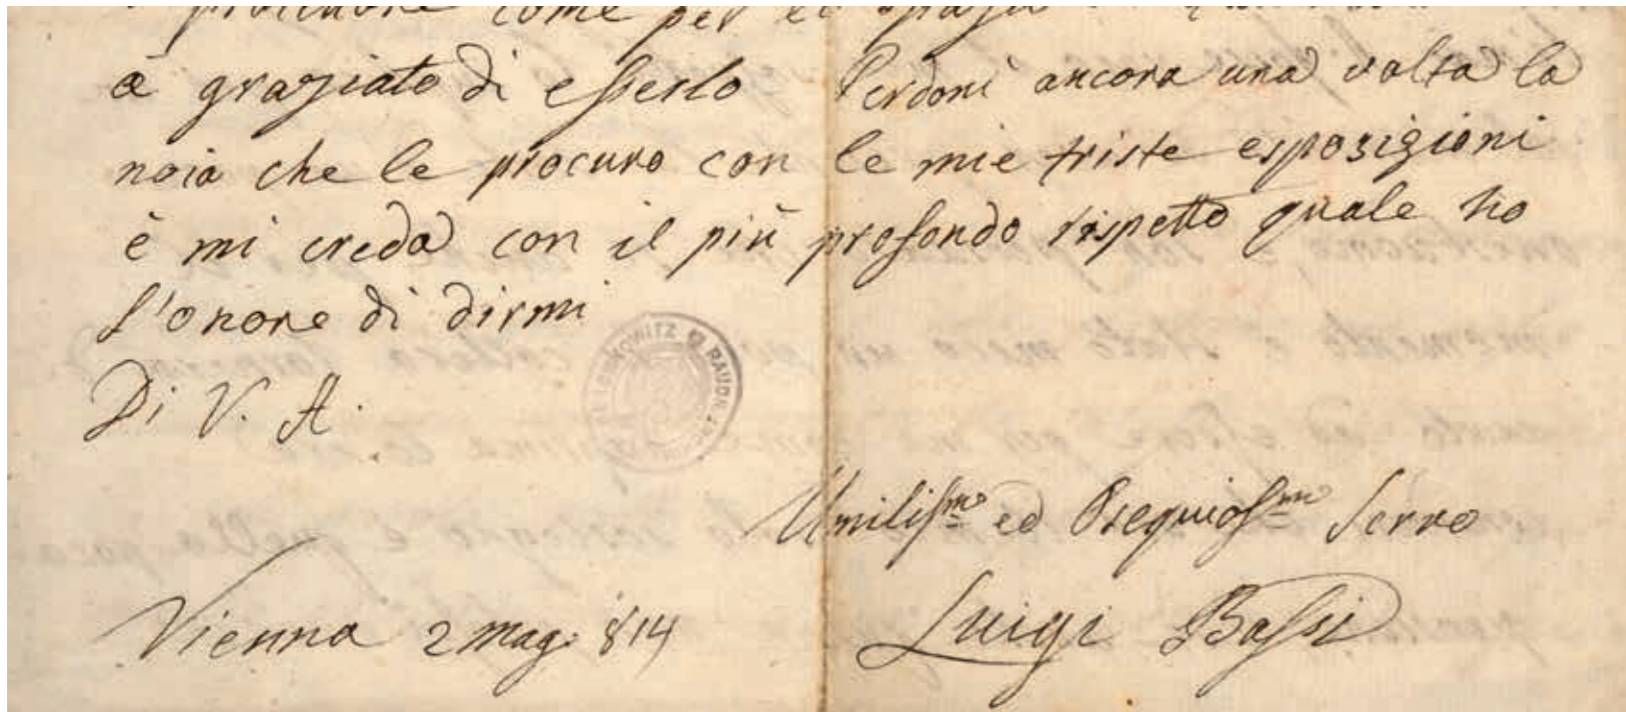 come per
à graziato di esserlo Perdoni ancora una volta la
noia che le procuro con le mie triste esposizioni
è mi creda con il più profondo rispetto quale ho
l'onore di dirmi
LOBKOWITZ RAUDN
Di V. A.
Umiliss.mo ed Osequioss.mo Servo
Vienna 2 Mag: 814 Luigi Bassi